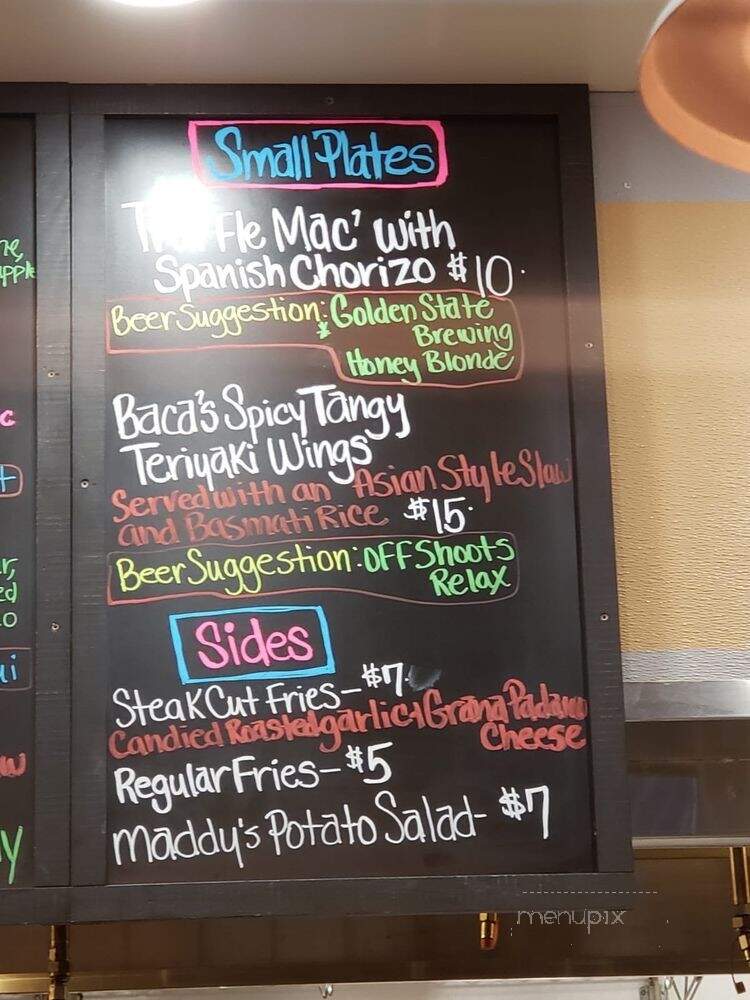 Small Plates
Truffle Mac' with
Spanish Chorizo $10.
Beer Suggestion: Golden State
Brewing
Honey Blonde
Baca's Spicy Tangy
Teriyaki Wings
Served with an Asian Style Slaw
and Basmati Rice $15.
Beer Suggestion: OFF Shoots
Relax
Sides
Steak Cut Fries - $7.
Candied Roasted garlic + Grana Padano
Cheese
Regular Fries - $5
Maddy's Potato Salad - $7
menupix